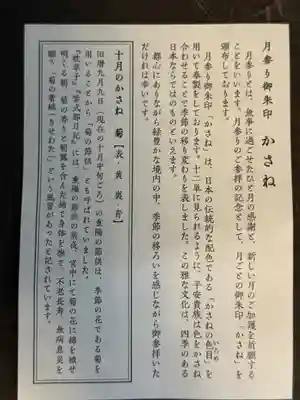 月参り御朱印　かさね
月参りとは、無事に過ごせたひと月の感謝と、新しい月のご加護を祈願する
ことをいいます。月参りのご参拝の記念として、月ごとの御朱印「かさね」を
頒布しております。
月参り御朱印「かさね」は、日本の伝統的な配色である「かさねの色目」を
いろめ
用いて奉製をしております。十二単に見られるように、平安貴族は色をかさね
合わせることで季節の移り変わりを表しました。この雅な文化は、四季のある
日本ならではのものといえます。
都心にありながら緑豊かな境内の中、季節の移ろいを感じながら御参拝いた
だければ幸いです。
十月のかさね　菊【表・黄　裏・青】
旧暦九月九日（現在の十月中旬ごろ）の重陽の節供は、季節の花である菊を
用いることから「菊の節供」とも呼ばれていました。
『枕草子』『紫式部日記』には、重陽の節供の前夜、宮中にて菊の花に綿を被せ
明くる朝、菊の香りと朝露を含んだ綿で身体を撫で、不老長寿、無病息災を
願う「菊の着綿（きせわた）」という風習があったと記されています。